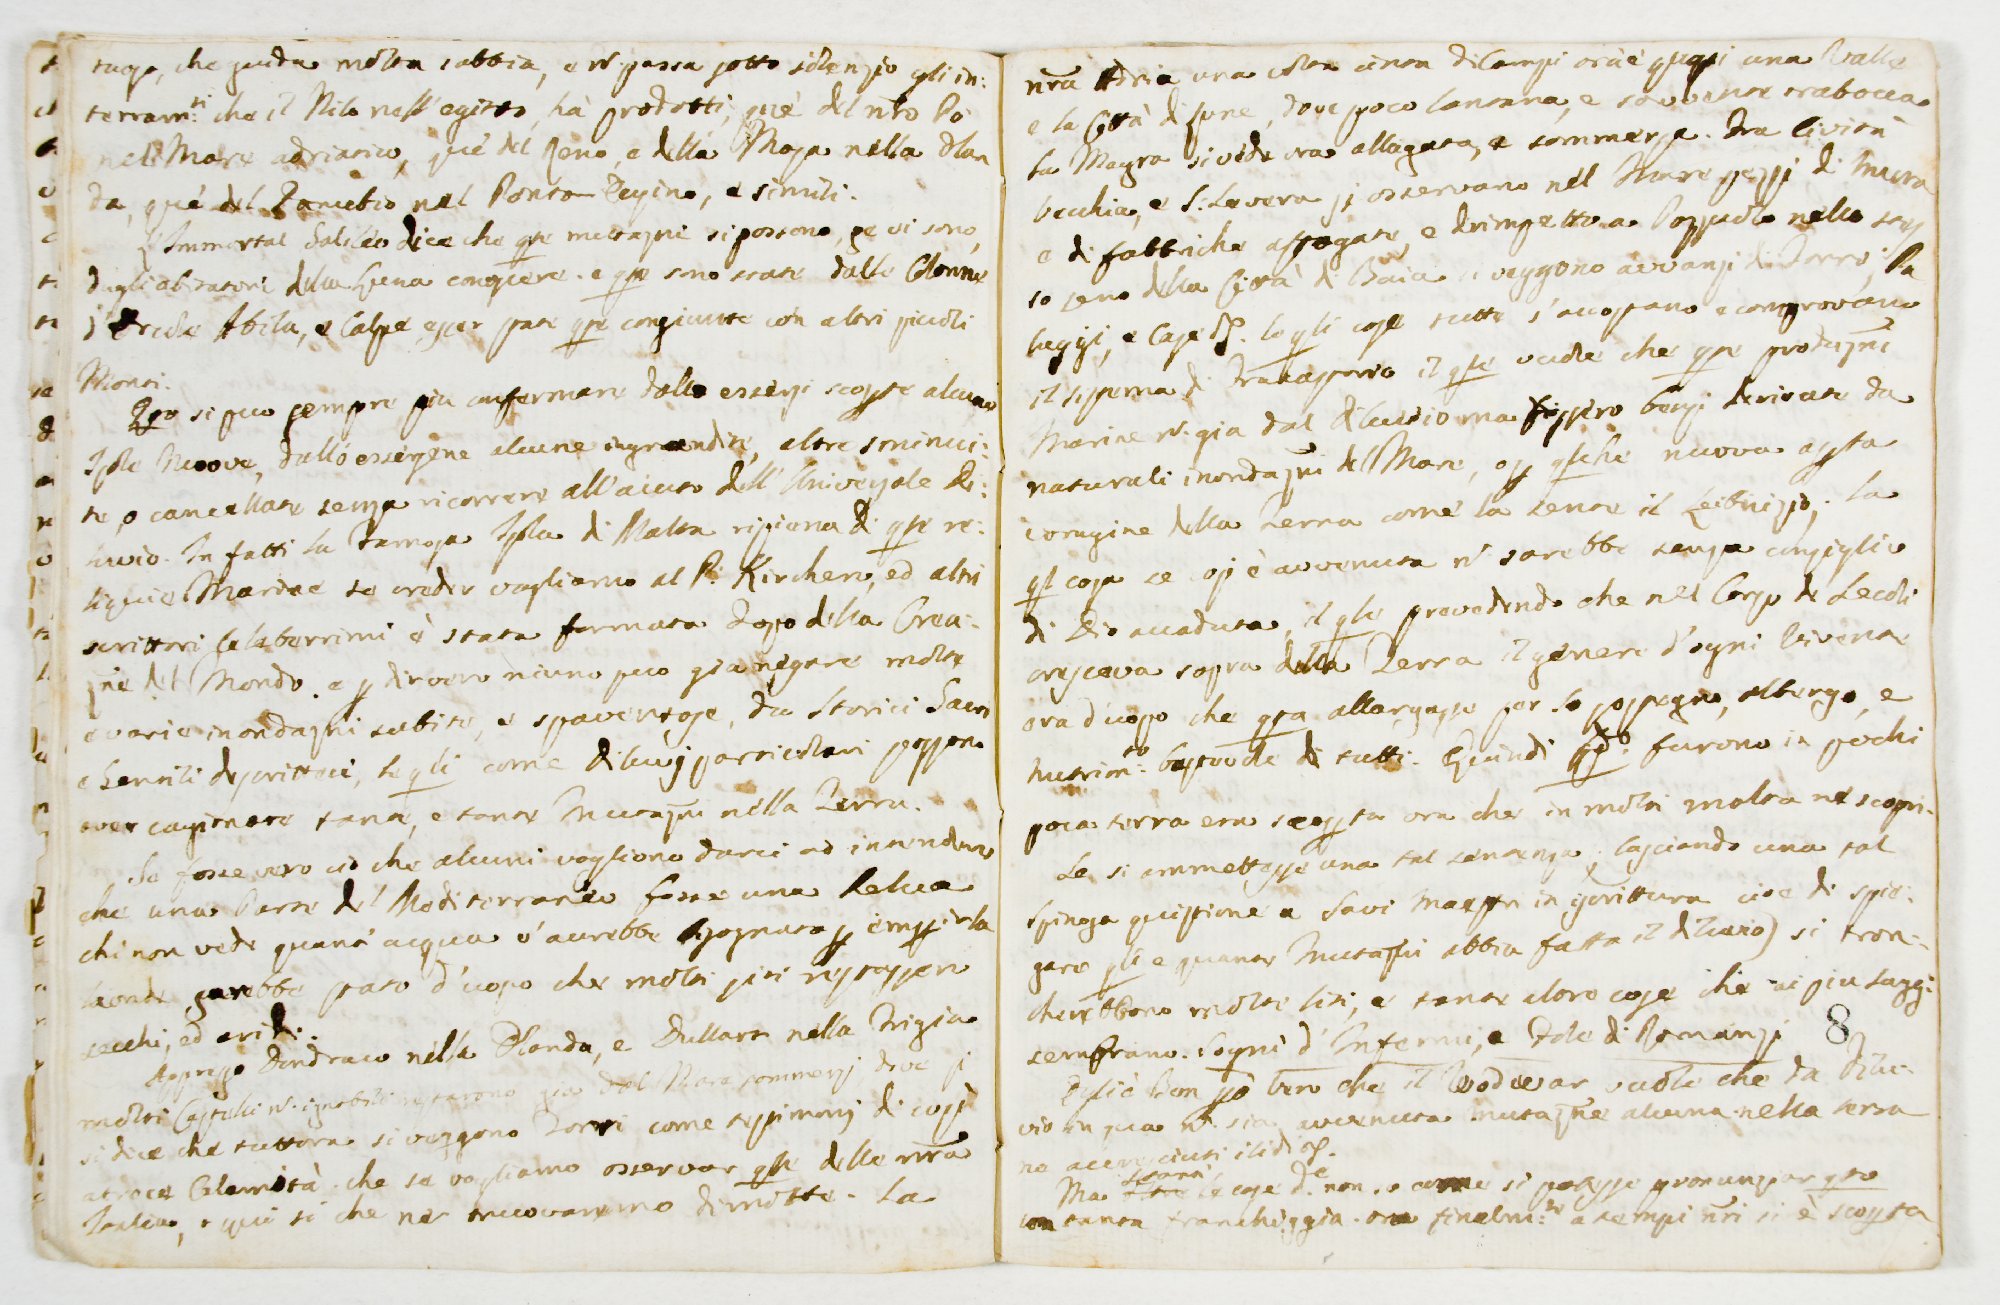 tuga, che guida molta sabbia, e n. passa sotto silenzio gli in:
terram.ti che il Nilo nell'egitto, hà prodotti, què del nro Pò
nel Mare adriatico, què del Reno, e della Mosa nella Olan
da, què del Danubio nel Ponto Eusino, e simili.
L'Immortal Galileo dice che qste mutazni si possono, se vi sono,
dagli abitatori della Luna conoscere. e qste sono state dalle Colonne
d'Ercole Abila, e Calpe, esser state qste congiunte con altri piccoli
Monti.
Qsto si può sempre più confermare dallo essersi scopte alcune
Isole Nuove, dall'ò essersene alcune ingrandite, altre sminui:
te, o cancellate senza ricorrere all'aiuto dell'Universale Di:
luvio. In fatti la famosa Isola di Malta ripiena di qste re:
liquie Marine se creder vogliamo al P. Kirchero, ed altri
scrittori Celeberrimi è stata formata dopo della Crea:
zne del Mondo. e p dir vero niuno può già negare molte
e varie inondazni subite, e spaventose, da Storici Sacri
e Gentili descritteci, le qli come diluvj particolari posson
aver cagionare tante, e tante Mutazni nella Terra.
Se fosse vero ciò che alcuni vogliono darci ad intendere
che una Parte del Mediterraneo fosse una Selva
chi non vede quant'acqua v'avrebbe bisognata p empirla
laonde sarebbe stato d'uopo che molti siti restassero
secchi, ed aridi.
Appresso Dondraco nella Olanda, e Dullart nella Frigia
molti Castelli n. ignobili restarono già dal Mare sommersi, dove si
si dice che tuttora si veggono Torri come testimonj di così
atroce Calamità. che se vogliamo osservar qste della nra
Italia, e qui si che ne truovaremo di molte. La
nra Adria una volta cinta di Campi ora è quasi una Valle
e la Città di Lune, dove poco lontana, e sovvente trabocca
la Magra si vede ora allagata, e sommersa. Tra Civita
Vecchia, e S. Severa si osservano nel Mare pezzi di Mura
e di fabbriche affogate, e dirimpetto a Pozzuolo nello stes
so seno della Città di Baia si veggono avvanzi di Torri, Pa
laggi, e Case &. le qli cose tutte s'accostano e comprovano
il sistema di il qle vuole che qste produzni
Marine n. gia dal diluvio ma fossero bensi derivate da
naturali inondazni del Mare, o p qlche nuova aspta
voragine della Terra come la sente il Leibnizio. La
ql cosa se cosi è avvenuta n. sarebbe senza consiglio
di Dio accaduta, il qle prevedendo che nel Corso de Secoli
cresceva sopra della Terra il genere d'ogni Vivente
era d'uopo che qsta allargasse per lo sostegno, albergo, e
nutrim.to bastevole di tutti. Quindi furono in pochi
poca terra era scopta ora che in molti molta ne scopri.
Se si ammettesse una tal sentenza, lasciando una tal
spinosa quistione a Savi Maestri in iscrittura cioè di spie:
gare qli e quante Mutazni abbia fatta il diluvio) si tron:
cherebbono molte liti, e tante altre cose che ai più saggi
sembrano. Sogni d'Infermi, e Fole di Romanzi 8
Egli è ben pò vero che il Wodewar vuole che da Dilu:
vio in qua n. sia avvenuta mutazne alcuna nella terra
ne accresciuti i lidi &.
Ma stanti le cose d.e non so come si potesse pronunziar qsto
con tanta franchiggia. ora finalm.te a tempi nri si è scopta